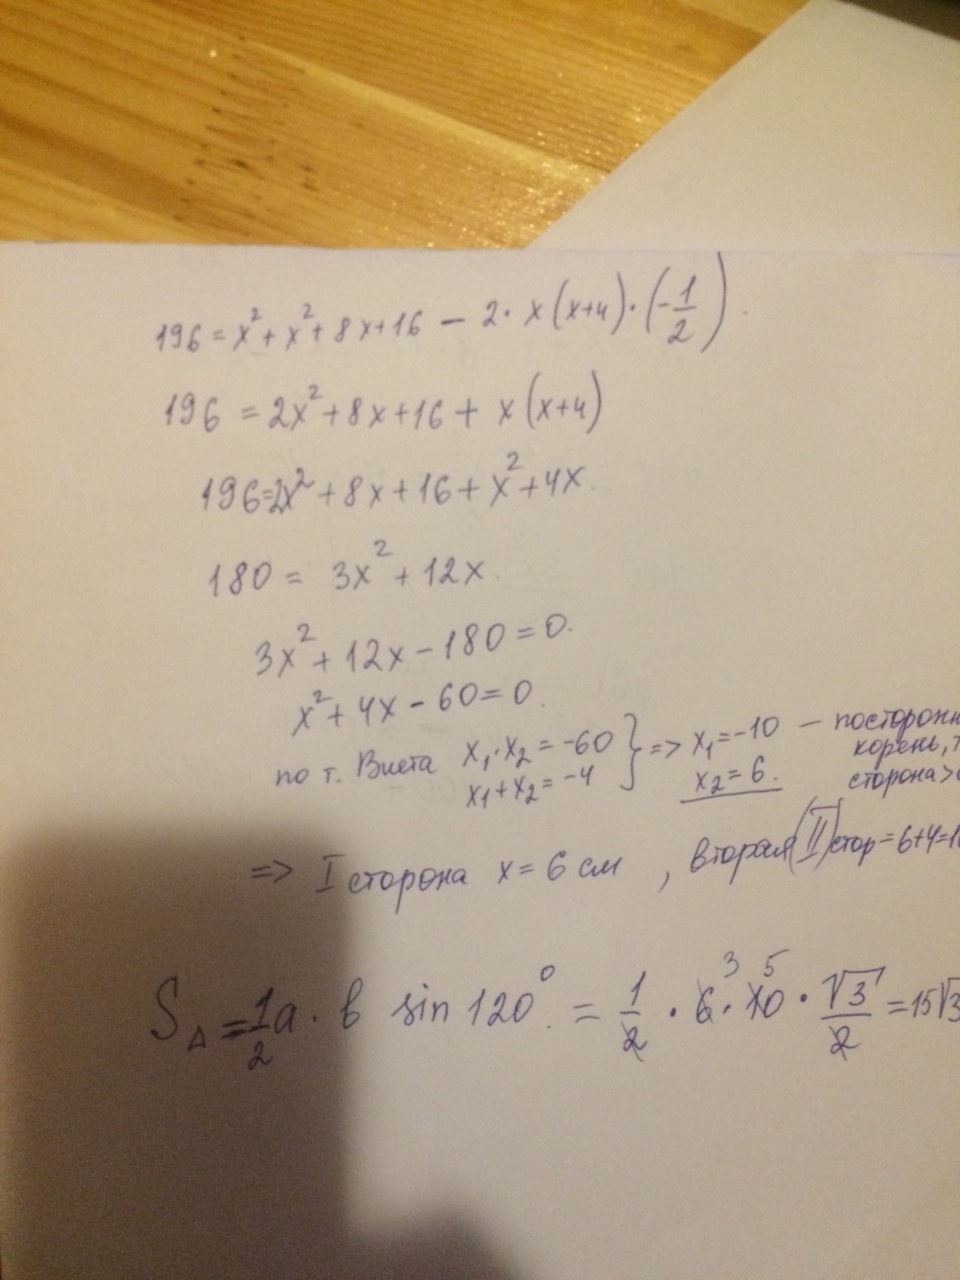 196 = x² + x² + 8x + 16 − 2 · x (x+4) · (−1/2).
196 = 2x² + 8x + 16 + x (x+4)
196 = 2x² + 8x + 16 + x² + 4x.
180 = 3x² + 12x.
3x² + 12x − 180 = 0.
x² + 4x − 60 = 0.
по т. Виета x₁·x₂ = −60 } => x₁ = −10 — посторонн
x₁+x₂ = −4 x₂ = 6. корень, т
сторона >
=> I сторона x = 6 см , вторая (II) стор = 6+4=1
S△ = 1/2 a · b sin 120°. = 1/2 · 6 3 · 10 5 · √3/2 = 15√3